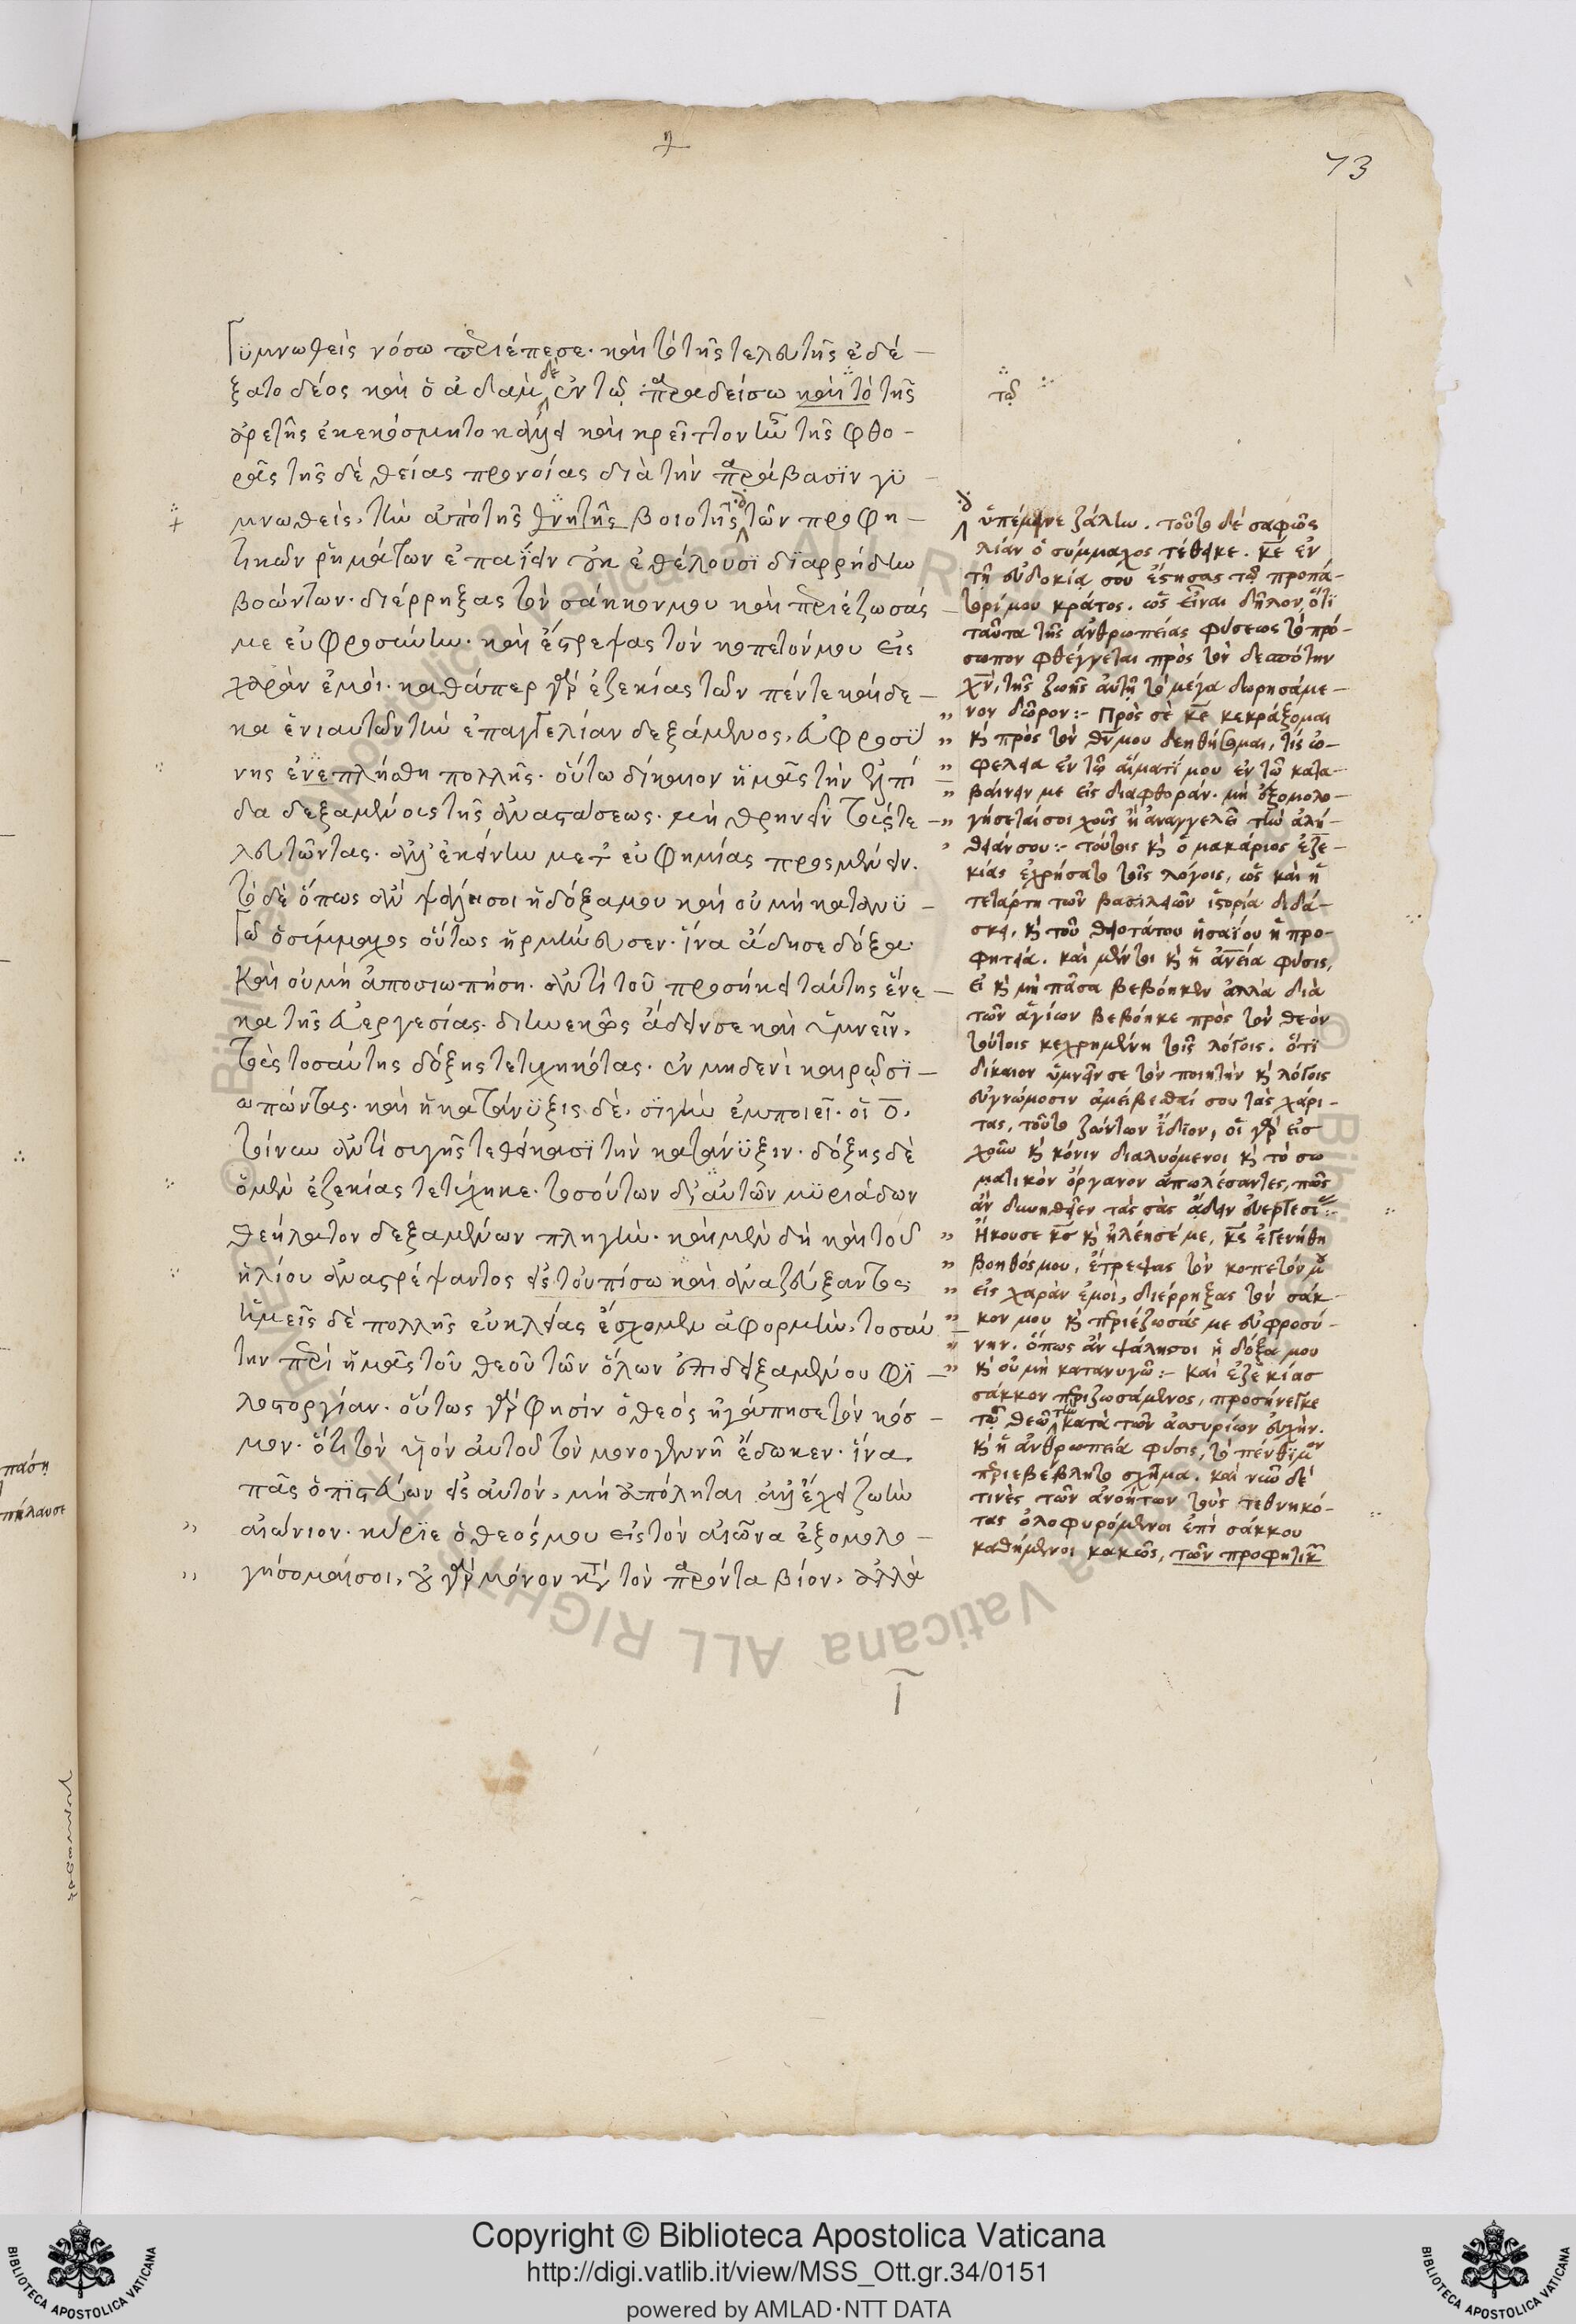 73
Γϋμνωθεὶς νόσω περιέπεσε· καὶ τὸ τῆς τελευτῆς ἐδέ-
ξατο δέος καὶ ὁ ἀδὰμ δὲ ἐν τῷ παραδείσω καὶ τὸ τῆς
ἀρετῆς ἐκεκόσμητο κάλλει καὶ κρεῖττον ἦν τῆς φθο-
ρᾶς τῆς δὲ θείας προνοίας διὰ τὴν παράβασϊν γϋ
μνωθεὶς, τὴν ἀπὸ τῆς θνητῆς βιοτῆς τῶν προφη-
τικῶν ῥημάτων ἐπαΐειν οὐκ ἐθέλουσϊ δϊαρρήδην
βοώντων· διέρρηξας τὸν σάκκον μου καὶ περιέζωσάς
με εὐφροσύνην· καὶ ἔστρεψας τὸν κοπετόν μου εἰς
χαρὰν ἐμοί· καθάπερ γὰρ ἐζεκίας τῶν πέντε καὶ δε-
κα ἐνιαυτῶν τὴν ἐπαγγελίαν δεξάμενος, εὐφροσϋ
νης ἐνεπλήσθη πολλῆς· οὕτω δίκαιον ἡμᾶς τὴν ἐλπί
δα δεξαμένους τῆς ἀναστάσεως· μὴ θρηνεῖν τοὺς τε-
λευτῶντας· ἀλλ' ἐκείνην μετ' εὐφημίας προσμένειν.
τὸ δὲ ὅπως ἂν ψάλη σοι ἡ δόξα μου καὶ οὐ μὴ κατανϋ-
γῶ ὁ σύμμαχος οὕτως ἡρμήνευσεν· ἵνα ἄδη σε δόξα·
καὶ οὐ μὴ ἀποσιωπήση· ἀντὶ τοῦ προσήκει ταύτης ἕνε-
κα τῆς εὐεργεσίας· διηνεκῶς ἄδειν σε καὶ ὑμνεῖν,
τοὺς τοσαύτης δόξης τετυχηκότας· ἐν μηδενὶ καιρῷ σϊ-
ωπῶντας· καὶ ἡ κατάνϋξις δὲ, σϊγὴν ἐμποιεῖ· οἱ ο̅,
τοίνυν ἀντὶ σιγῆς τεθείκασϊ τὴν κατάνϋξιν· δόξης δὲ
ὁ μὲν ἐζεκίας τετύχηκε, τοσούτων δι' αὐτῶν μϋριάδων
θεήλατον δεξαμένων πληγὴν· καὶ μὲν δὴ καὶ τοῦ
ἡλίου ἀναστρέψαντος εἰς τοὐπίσω καὶ ἀναζεύξαντος
ἡμεῖς δὲ πολλῆς εὐκλείας ἔσχομεν ἀφορμὴν, τοσαύ-
την περὶ ἡμᾶς τοῦ θεοῦ τῶν ὅλων ἐπιδειξαμένου φϊ-
λοστοργίαν· οὕτως γὰρ φησὶν ὁ θεὸς ἠγάπησε τὸν κόσ-
μον· ὅτι τὸν υἱὸν αὐτοῦ τὸν μονογενῆ ἔδωκεν· ἵνα
πᾶς ὁ πϊστεύων εἰς αὐτόν, μὴ ἀπόληται ἀλλ' ἔχει ζωὴν
αἰώνιον· κύρϊε ὁ θεός μου εἰς τὸν αἰῶνα ἐξομολο-
γήσομαί σοι, οὐ γὰρ μόνον κατὰ τὸν παρόντα βίον, ἀλλὰ
τῷ
ὑπέμεινε ζάλην. τοῦτο δὲ σαφῶς
λίαν ὁ σύμμαχος τέθεικε. κε̅ ἐν
τῇ εὐδοκία σου ἔστησας τῷ προπά-
τορί μου κράτος. ὡς εἶναι δῆλον, ὅτϊ
ταῦτα τῆς ἀνθρωπείας φύσεως τὸ πρό-
σωπον φθέγγεται πρὸς τὸν δεσπότην
χν̅, τῆς ζωῆς αὐτῇ τὸ μέγα δωρησάμε-
νον δῶρον :- Πρὸς σὲ κε̅ κεκράξομαι
κ πρὸς τὸν θν̅ μου δεηθήσομαι, τίς ὠ-
φέλεια ἐν τῷ αἵματί μου ἐν τῷ κατα-
βαίνειν με εἰς διαφθοράν. μὴ ἐξομολο-
γήσεταί σοι χοῦς ἢ ἀναγγελεῖ τὴν ἀλή-
θειάν σου :- τούτοις κ ὁ μακάριος ἐζε-
κίας ἐχρήσατο τοῖς λόγοις, ὡς καὶ ἡ
τετάρτη τῶν βασιλειῶν ἱστορία διδά-
σκει, κ τοῦ θειοτάτου ἡσαΐου ἡ προ-
φητεία. καὶ μέντοι κ ἡ ἀν̅εία φύσις,
εἰ κ μὴ πᾶσα βεβόηκεν ἀλλὰ διὰ
τῶν ἁγίων βεβόηκε πρὸς τὸν θεὸν
τούτοις κεχρημένη τοῖς λόγοις. ὅτϊ
δίκαιον ὑμνεῖν σε τὸν ποιητὴν κ λόγοις
εὐγνώμοσιν ἀμείβεσθαί σου τὰς χάρι-
τας, τοῦτο ζώντων ἴδϊον, οἱ γὰρ εἰς
χοῦν κ κόνιν διαλυόμενοι κ τὸ σω
ματικὸν ὄργανον ἀπωλέσαντες, πῶς
ἂν δυνηθεῖεν τὰς σὰς ᾄδειν εὐεργεσίας :-
Ἤκουσε κς̅ κ ἠλέησέ με, κς̅ ἐγενήθη
βοηθός μου, ἔστρεψας τὸν κοπετόν μου
εἰς χαρὰν ἐμοὶ, διέρρηξας τὸν σάκ-
κον μου κ περιέζωσάς με εὐφροσύ-
νην. ὅπως ἂν ψάλη σοι ἡ δόξα μου
κ οὐ μὴ κατανυγῶ :- καὶ ἐζεκίας
σάκκον περιζωσάμενος, προσήνεγκε
τῷ θεῷ τὴν κατὰ τῶν ἀσσυρίων εὐχήν.
κ ἡ ἀνθρωπεία φύσις, τὸ πένθϊμον
περιεβέβλητο σχῆμα. καὶ νῦν δὲ
τινὲς τῶν ἀνοήτων τοὺς τεθνηκό-
τας ὀλοφυρόμενοι ἐπὶ σάκκου
καθήμενοι κακῶς, τῶν προφητικ
Copyright © Biblioteca Apostolica Vaticana
http://digi.vatlib.it/view/MSS_Ott.gr.34/0151
powered by AMLAD·NTT DATA